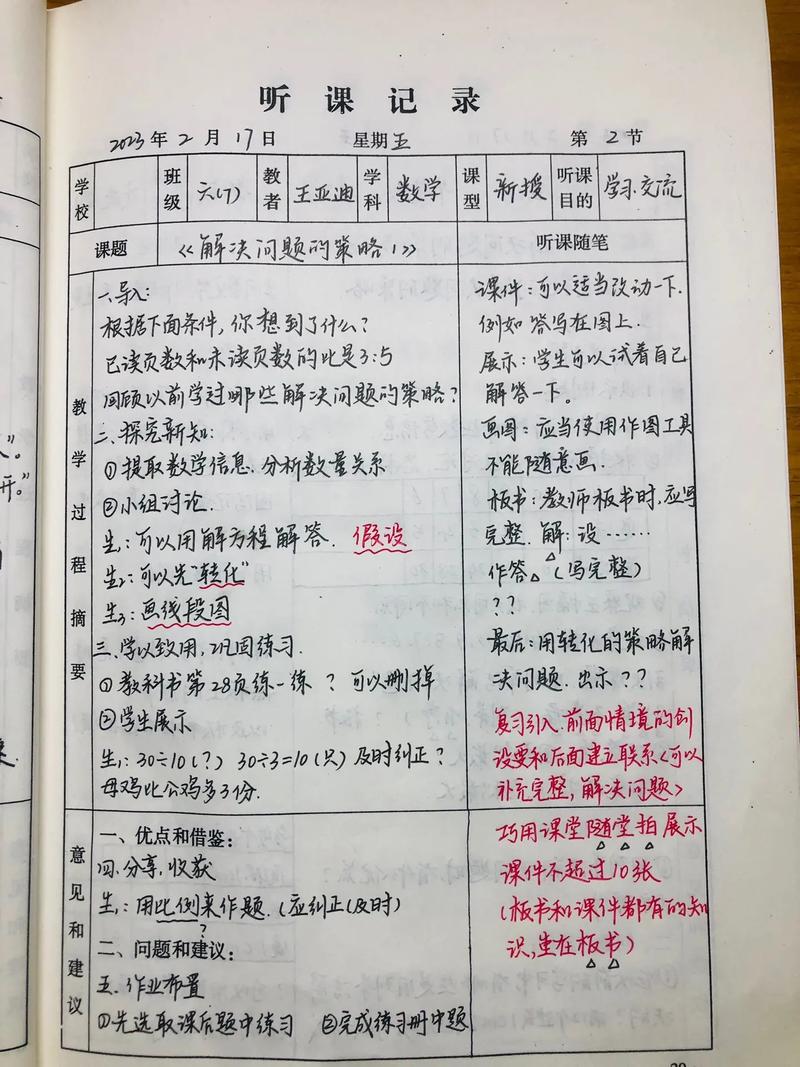 听课记录
2023年2月17日 星期五 第2节
学校 班级 六(7) 教者 王亚迪 学科 数学 课型 新授 听课目的 学习.交流
课题 《解决问题的策略1》 听课随笔
教学过程摘要
一.导入:
根据下面条件,你想到了什么?
已读页数和未读页数的比是3:5
回顾以前学过哪些解决问题的策略?
二.探究新知:
①提取数学信息.分析数量关系
②小组讨论.
生1:可以用解方程解答. 假设
生2:可以先"转化"
生3:画线段图
三.学以致用,巩固练习.
①教科书第28页练一练 ? 可以删掉
②学生展示
生1:30÷10(?) 30÷3=10(只)及时纠正?
母鸡比公鸡多3份.
课件:可以适当改动一下.
例如答写在图上.
展示:学生可以试着自己
解答一下。
画图:应当使用作图工具
不能随意画.
板书:教师板书时,应写
完整.解:设……
作答(写完整)
??
最后:用转化的策略解
决问题.出示??
复习引入.前面情境的创
设要和后面建立联系<可以
补充完整,解决问题>
意见和建议
一、优点和借鉴:
四.分享,收获
生1:用比例来作题.(应纠正(及时)
?
二、问题和建议:
五.作业布置
①先选取课后题中练习 ②完成练习册中题
巧用课堂随堂拍展示
课件不超过10张
(板书和课件都有的知
识,重在板书)